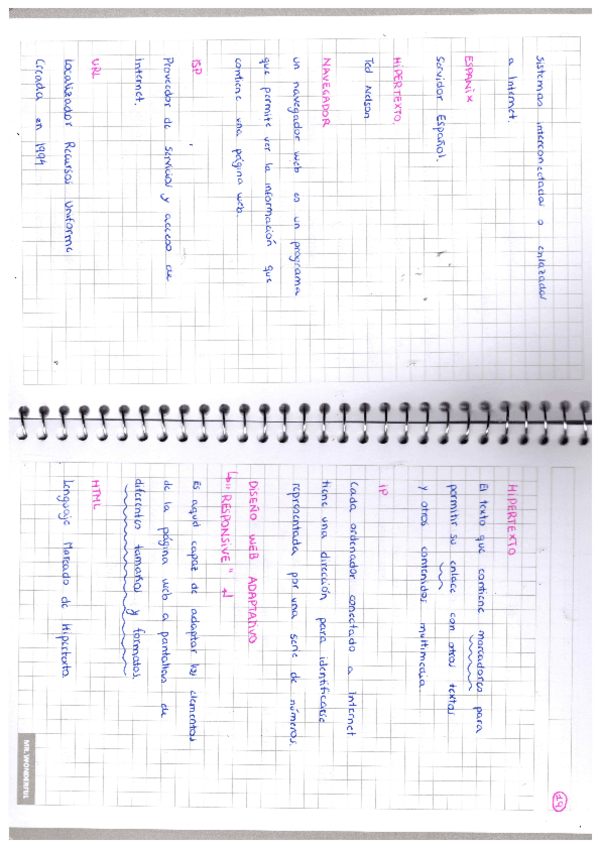 sistemas interconectados o enlazados
a Internet.
ESPANIX
Servidor Español.
HIPERTEXTO.
Ted Nelson
NAVEGADOR
un navegador web es un programa
que permite ver la información que
contiene una página web.
ISP
Proveedor de servicios y acceso de
Internet.
URL
Localizador Recursos Uniforme
Creada en 1994
29
HIPERTEXTO
El texto que contiene marcadores para
permitir su enlace con otros textos
y otros contenidos multimedia.
IP
Cada ordenador conectado a Internet
tiene una dirección para identificarse
representada por una serie de números.
DISEÑO WEB ADAPTATIVO
↳ "RESPONSIVE" ↲
Es aquel capaz de adaptar los elementos
de la página web a pantallas de
diferentes tamaños y formatos.
HTML
Lenguaje Marcado de Hipertexto
MR. WONDERFUL